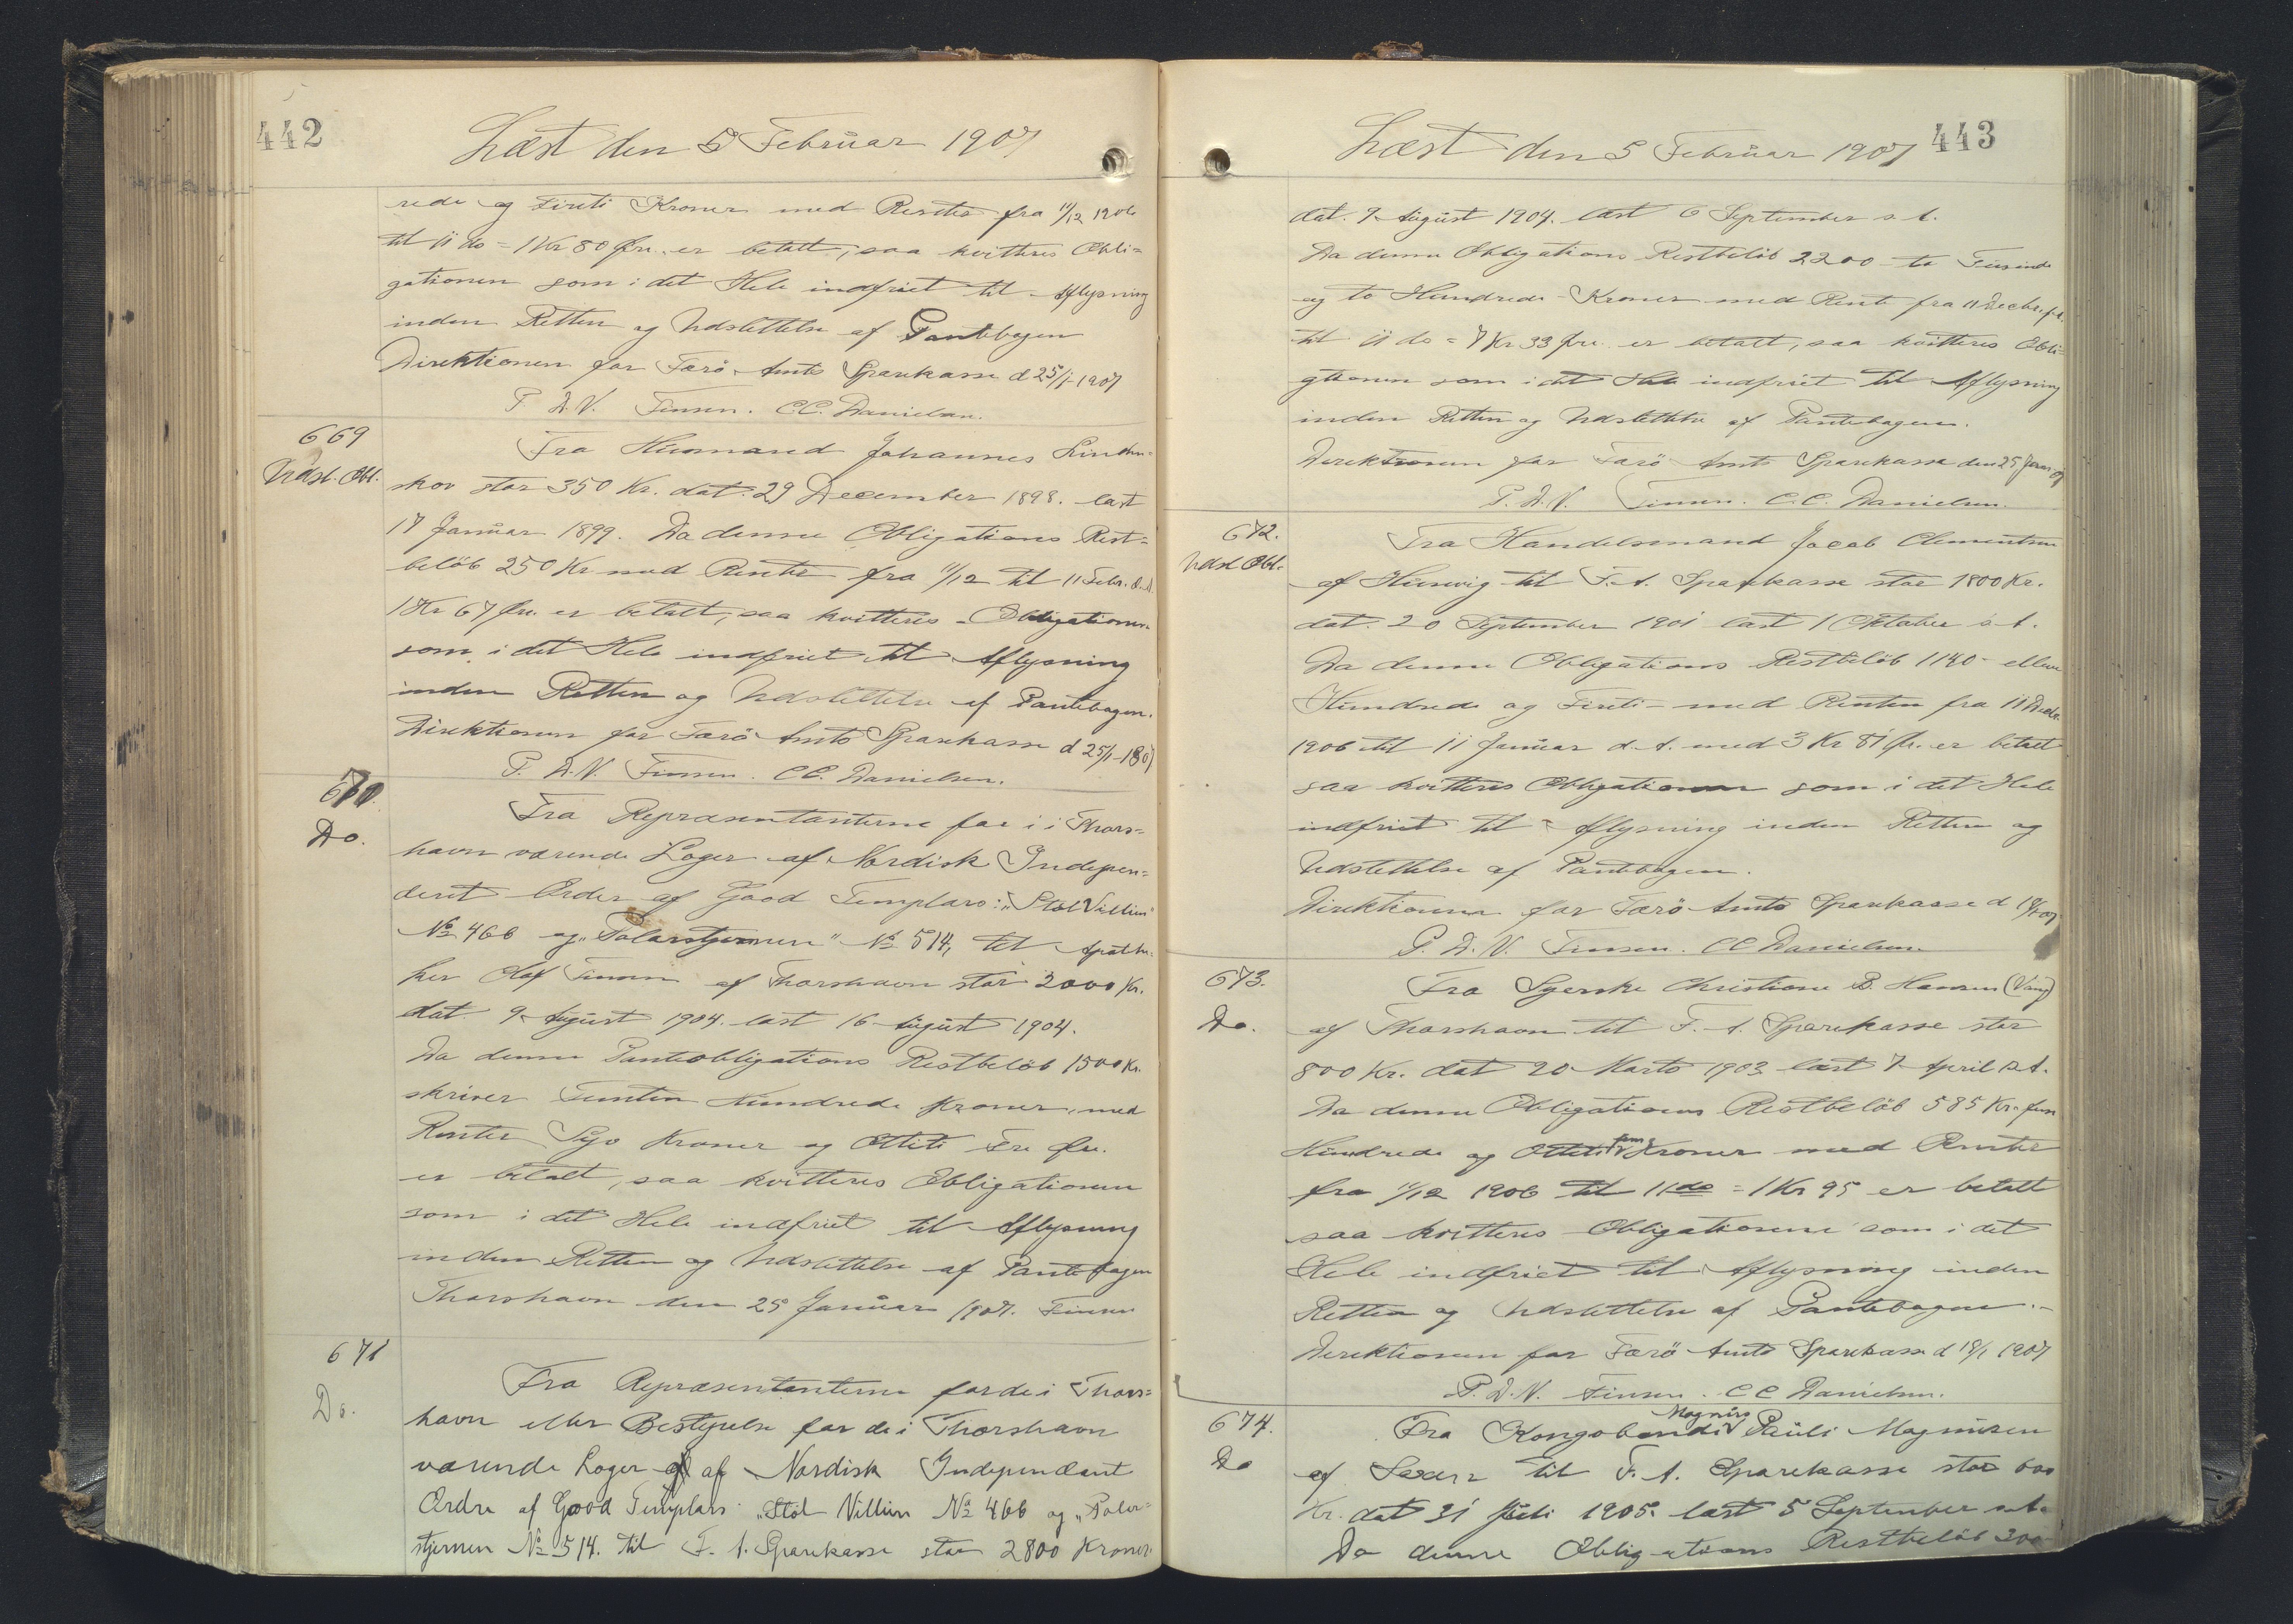 442
Læst den 5 Februar 1907
rede og Fireti Kroner med Renter fra 11/12 1906
til 11 do = 1 Kr 80 Øre er betalt, saa kvitteres Obli=
gationen som i det Hele indfriet til Aflysning
inden Retten og Udslettelse af Pantebogen
Direktionen for Færö Amts Sparekasse d 25/1-1907
P. D. V. Finsen. C.C. Danielsen.
669
Udsl. Obl.
Fra Husmand Johannes Linden=
skov stor 350 Kr. dat. 29 December 1898. læst
17 Januar 1899. Da denne Obligations Rest=
beløb 250 Kr med Rente fra 11/12 til 11 Febr. d.A.
1 Kr 67 Øre er betalt, saa kvitteres Obligationen
som i det Hele indfriet til Aflysning
inden Retten og Udslettelse af Pantebogen.
Direktionen for Færö Amts Sparekasse d 25/1-1907
P. D. V. Finsen. C.C. Danielsen.
670.
Do.
Fra Repræsentanterne for i i Thors=
havn værende Loger af Nordisk Indepen=
dent Order af Good Templars: "Stöl Villien"
No 466 og "Polarstjernen" No 514, til Apothe=
ker Olaf Finsen af Thorshavn stor 2000 Kr.
dat. 9 August 1904. læst 16 August 1904.
Da denne Panteobligations Restbeløb 1500 Kr.
skriver Femten Hundrede Kroner, med
Renter Syv Kroner og Otteti Øre
er betalt, saa kvitteres Obligationen
som i det Hele indfriet til Aflysning
inden Retten og Udslettelse af Pantebogen
Thorshavn den 25 Januar 1907. Finsen
671
Do.
Fra Repræsentanterne for de i Thors=
havn eller Bestyrelse for de i Thorshavn
værende Loger af Nordisk Independant
Ordre af Good Templars "Stöl Villien No 466 og "Polar=
stjernen No 514. til F. A. Sparekasse stor 2800 Kroner
443
Læst den 5 Februar 1907
dat. 9 August 1904. læst 6 September s. A.
Da denne Obligations Restbelöb 2200 to Tusinde
og to Hundrede Kroner med Rente fra 11 Decbr. f.A.
til 11 do = 7 Kr 33 Øre er betalt, saa kvitteres Obli=
gtionen som i det Hele indfriet til Aflysning
inden Retten og Udslettelse af Pantebogen.
Direktionen for Færö Amts Sparekasse den 25 Januar 07
P. D. V. Finsen. C.C. Danielsen.
672.
Udsl Obl.
Fra Handelsmand Jacob Clementsen
af Husevig til F. A. Sparekasse stor 1800 Kr.
dat. 20 September 1901 læst 1 Oktober s. A.
Da denne Obligations Restbeløb 1140 - elleve
Hundrede og Fireti - med Renten fra 11 Decbr.
1906 til 11 Januar d. A. med 3 Kr 81 Øre er betalt
saa kvitteres Obligationen som i det Hele
indfriet til Aflysning inden Retten og
Udslettelse af Pantebogen.
Direktionen for Færö Amts Sparekasse d 18/1-07
P. D. V. Finsen. C C Danielsen
673.
Do.
Fra Syerske Christiane B. Hansen (Vang)
af Thorshavn til F. A. Sparekasse stor
800 Kr. dat 20 Marts 1903 læst 7 April s.A.
Da denne Obligations Restbeløb 585 Kr. fem
Hundrede og Otteti fem Kroner med Renter
fra 11/12 1906 til 11 do = 1 Kr 95 er betalt
saa kvitteres Obligationen som i det
Hele indfriet til Aflysning inden
Retten og Udslettelse af Pantebogen.-
Direktionen for Færö Amts Sparekasse d 18/1 1907
P. D. V. Finsen. C C Danielsen.
674.
Do
Fra Kongsbonde Magnus Pauli Magnusen
af til F. A. Sparekasse stor 600
Kr. dat 31 Juli 1905. læst 5 September s.A.
Da denne Obligations Restbeløb 300